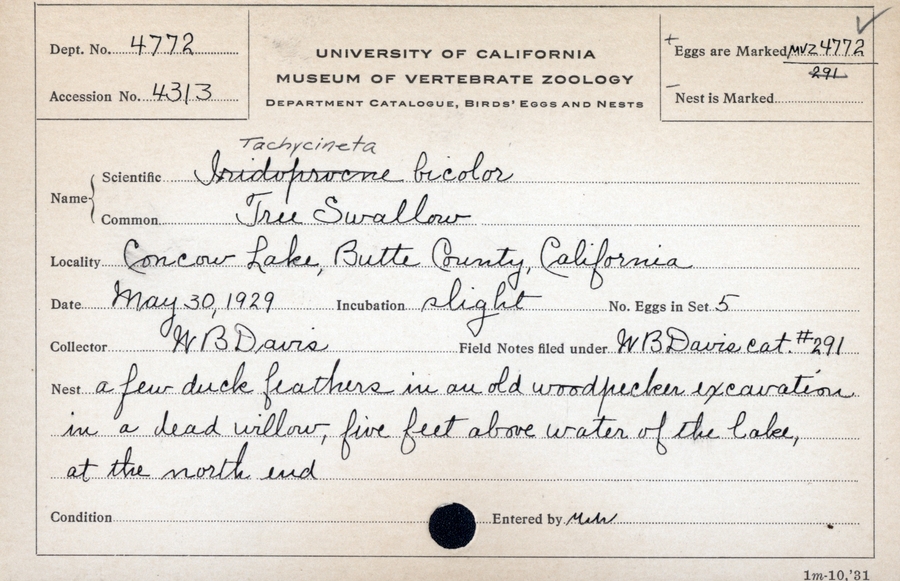 Dept. No. 4772
Accession No. 4313
UNIVERSITY OF CALIFORNIA
MUSEUM OF VERTEBRATE ZOOLOGY
DEPARTMENT CATALOGUE, BIRDS' EGGS AND NESTS
+ Eggs are Marked MVZ 4772
291
- Nest is Marked
Tachycineta
Name Scientific Iridoprocne bicolor
Common Tree Swallow
Locality Concow Lake, Butte County, California
Date May 30, 1929 Incubation slight No. Eggs in Set 5
Collector W B Davis Field Notes filed under W B Davis cat. #291
Nest a few duck feathers in an old woodpecker excavation
in a dead willow, five feet above water of the lake,
at the north end
Condition Entered by
1m-10,'31